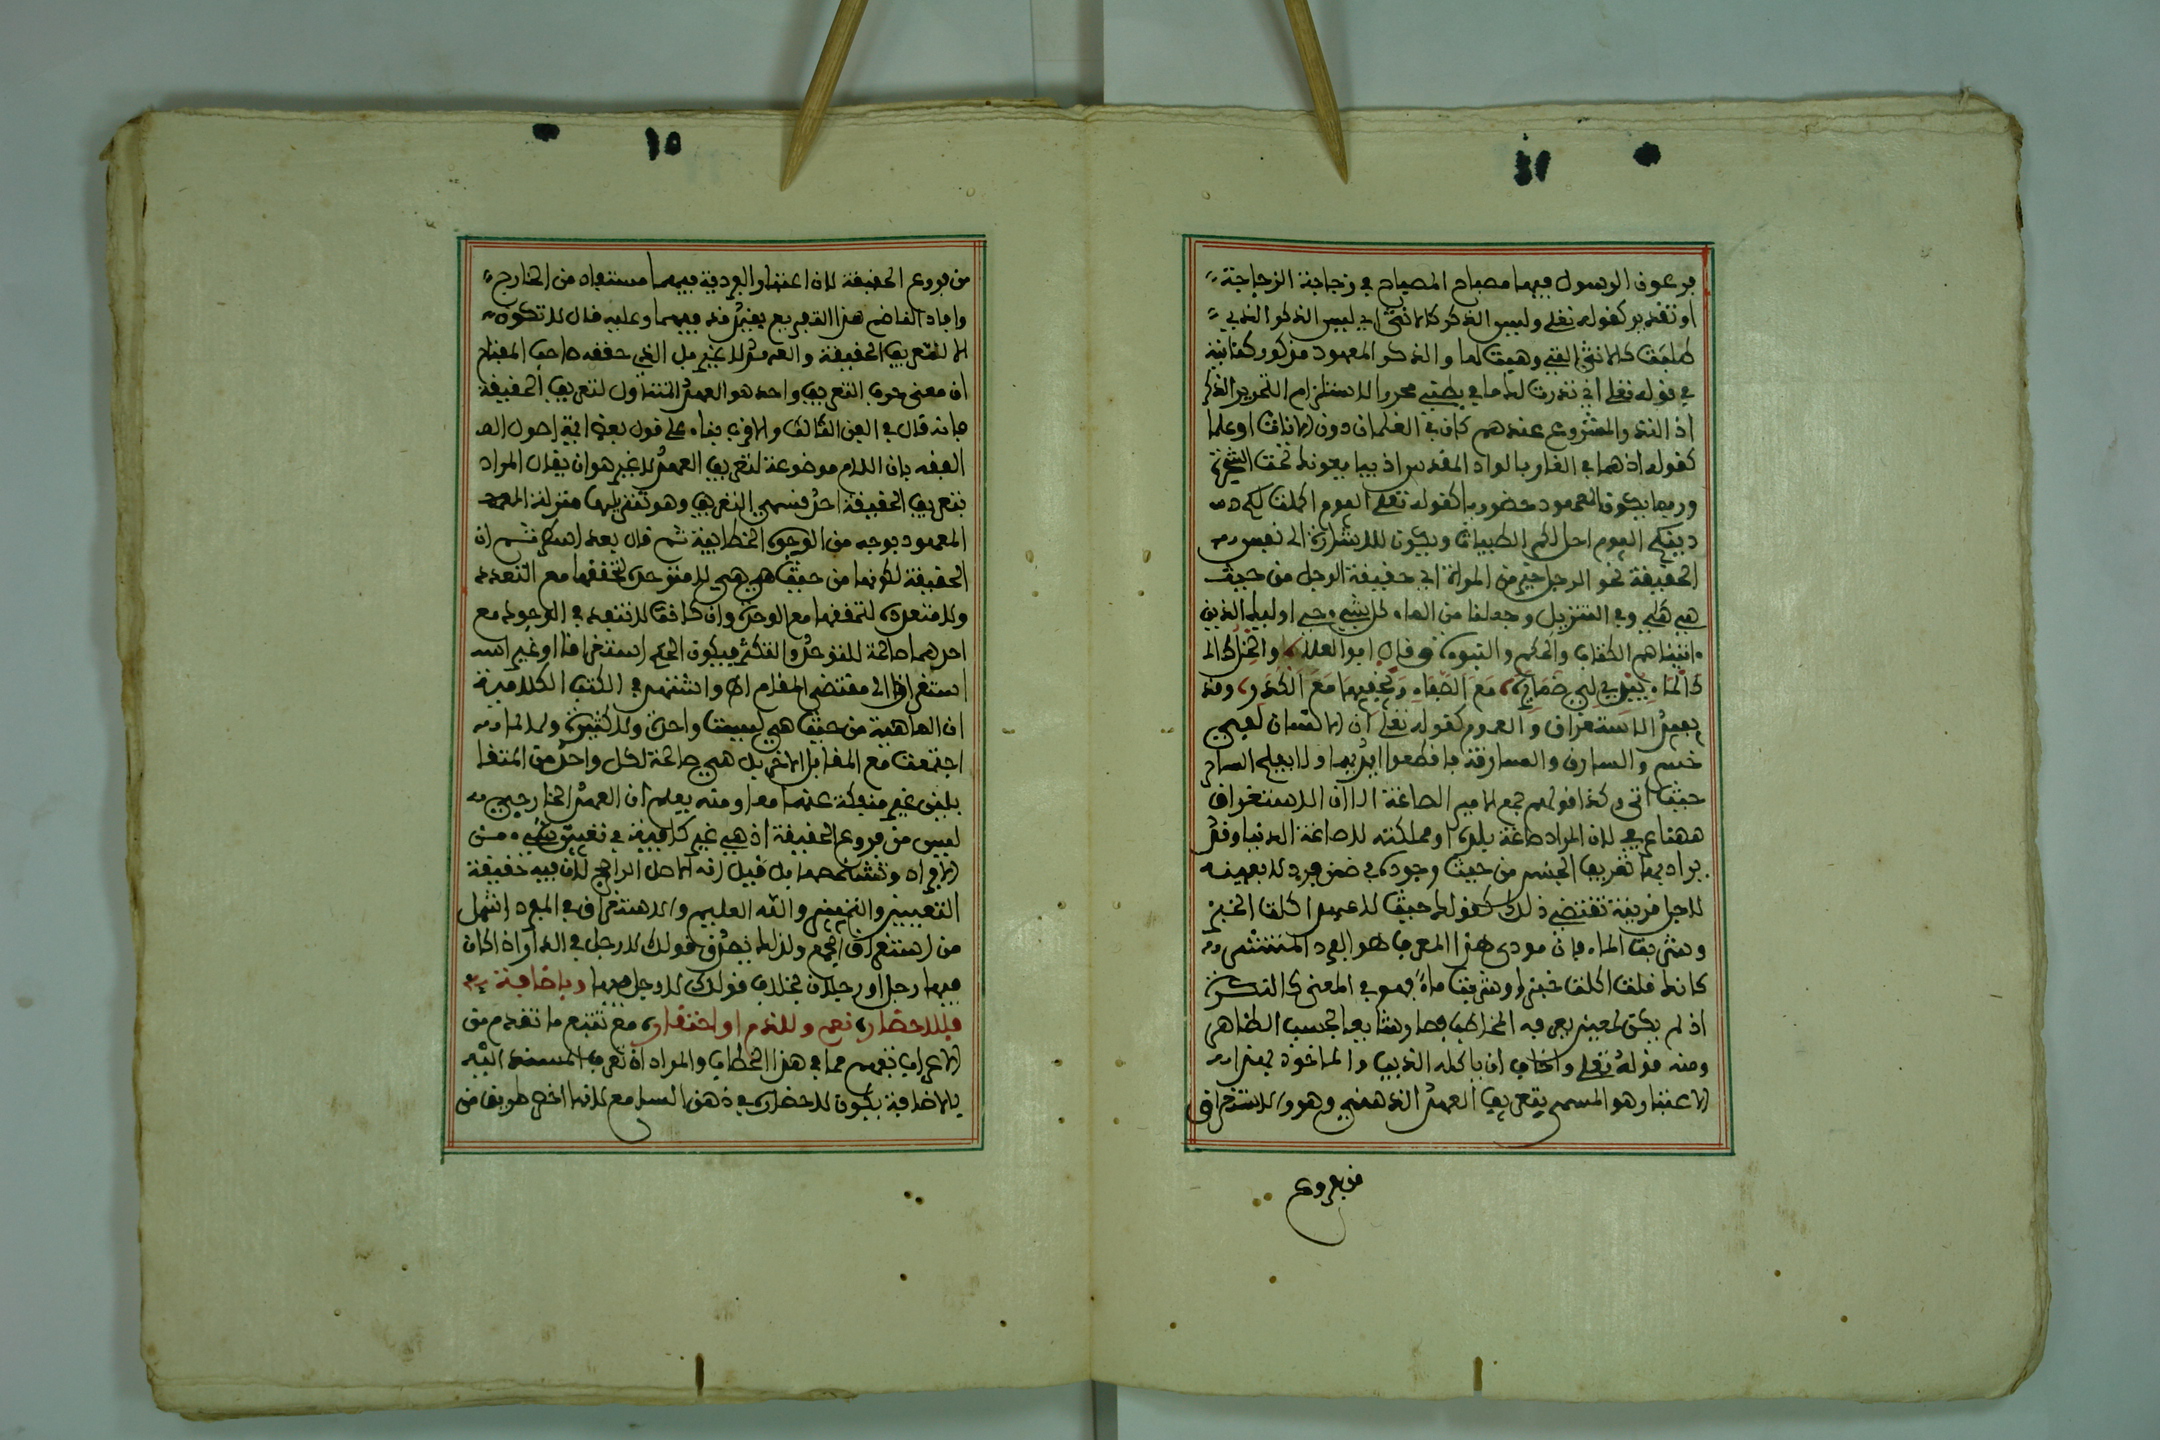 ١٤
فرعون الرسول فيها مصباح المصباح في زجاجة الزجاجة
او تقديرا كقوله تعلى وليس الذكر كالانثى اي ليس الذكر الذي
طلبت كالانثى التي وهبت لها والذكر المعهود مذكور كناية
في قوله تعلى اني نذرت لك ما في بطني محررا لاستلزام التحرير الذكر
اذ النذر المشروع عندهم كان في الغلمان دون الاناث او علما
كقوله اذ هما في الغار بالواد المقدس اذ يبايعونك تحت الشجرة
وربما يكون المعهود حضوريا كقوله تعلى اليوم اكملت لكم
دينكم اليوم احل لكم الطيبات ويكون للاشارة الى نفس
الحقيقة نحو الرجل خير من المراة اي حقيقة الرجل من حيث
هي هي وفي التنزيل وجعلنا من الماء كل شيء حي اوليك الذين
ءاتيناهم الكتاب والحكم والنبوة وقال ابو العلاء والخل كالـ
كالماء يبدي لي ضمايره مع الصفاء ويخفيها مع الكدر وقد
يفيد الاستغراق والعموم كقوله تعلى ان الانسان لفي
خسر والسارق والسارقة فاقطعوا ايديهما ولا يفلح الساحر
حيث اتى وكذا قولهم جمع الامير الصاغة الا ان الاستغراق
ههنا عرفي لان المراد صاغة بلده او مملكته لا صاغة الدنيا وقد
يراد بها تعريف الجنس من حيث وجوده في ضمن فرد لا بعينه
لاجل قرينة تقتضي ذلك كقولك حيث لا عهد اكلت الخبز
وشربت الماء فان مودى هذا المعرف هو الفرد المنتشر
كانك قلت اكلت خبزا وشربت ماء فهو في المعنى كالنكرة
اذ لم يكن لمعين يعرفه المخاطب فصار شايعا بحسب الظاهر
ومنه قوله تعلى واخاف ان ياكله الذيب والماخوذ بهذا
الاعتبار هو المسمى بتعريف العهد الذهني وهو والاستغراق
من فروع
١٥
من فروع الحقيقة لان اعتبار الفردية فيهما مستفاد من الخارج
وافاد الفاضل هذا التفريع بعينه فيهما وعليه فال لا تكون
الا لتعريف الحقيقة والعهد لا غير بل الذي حققه صاحب المفتاح
ان معنى حرف التعريف واحد هو العهد المتناول لتعريف الحقيقة
فانه قال في الفن الثالث والاقرب بناء على قول بعض ايمة اصول
الفقه بان اللام موضوعة لتعريف العهد لا غير هو ان يقال المراد
بتعريف الحقيقة احد قسمي التعريف وهو تنزيلها منزلة
المعهود بوجه من الوجوه الخطابية ثم قال بعد اسطر ثم ان
الحقيقة لكونها من حيث هي هي لا متوحدة لتحققها مع التعدد
ولا متعددة لتحققها مع الوحدة وان كانت لا تنفك في الوجود مع
احدهما صالحة للتوحد والتكثر فيكون الحكم استغراقا او غير
استغراق الى مقتضى المقام اه واشتهر في الكتب الكلامية
ان الماهية من حيث هي ليست واحدة ولا كثيرة ولا لما
اجتمعت مع المقابل الاخر بل هي صالحة لكل واحد من المتقا
بلين غير منفكة عنهما معا ومنه يعلم ان العهد الخارجي
ليس من فروع الحقيقة اذ هي غير كافية في تعيين شيء من
الافراد وتشخصها بل قيل انه الاصل الراجح لان فيه حقيقة
التعيين والتمييز والله العليم والاستغراق في المفرد اشمل
من استغراق الجمع ولذلك يصدق قولك لا رجل في الدار اذا كان
فيها رجل او رجلان بخلاف قولك لا رجل فيها وباضافة
فللاحضار نعم وللذم او احتقار مع تتبع ما تقدم من
الاعراب تفهم مما في هذا الخطاب والمراد ان تعريف المسند اليه
بالاضافة يكون لاحضاره في ذهن السامع لانها اخصر طريق من